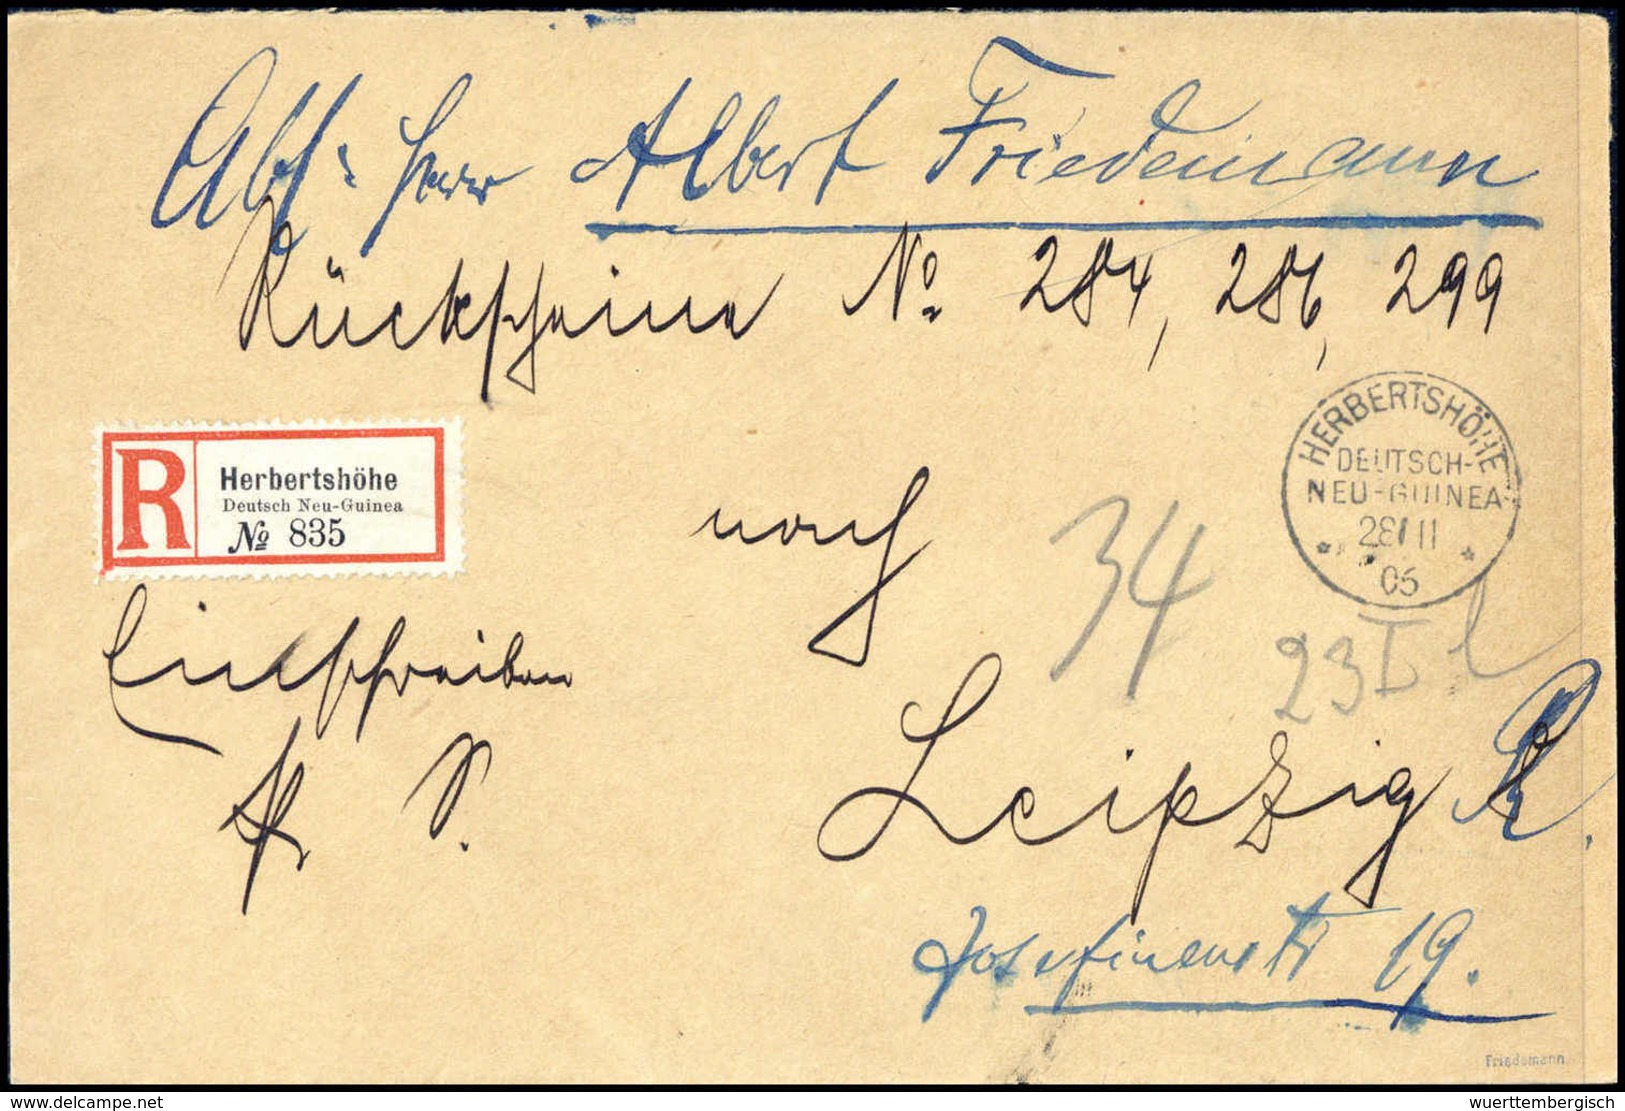 Abs: Herr Albert Friedemann
Rückscheine No. 284, 286, 299
HERBERTSHÖHE
DEUTSCH-
NEU-GUINEA
28/11
05
R
Herbertshöhe
Deutsch Neu-Guinea
No 835
nach
34
23 I
Einschreiben
Leipzig R.
Josefinenstr 19.
Friedemann
www.delcampe.net
wuerttembergisch